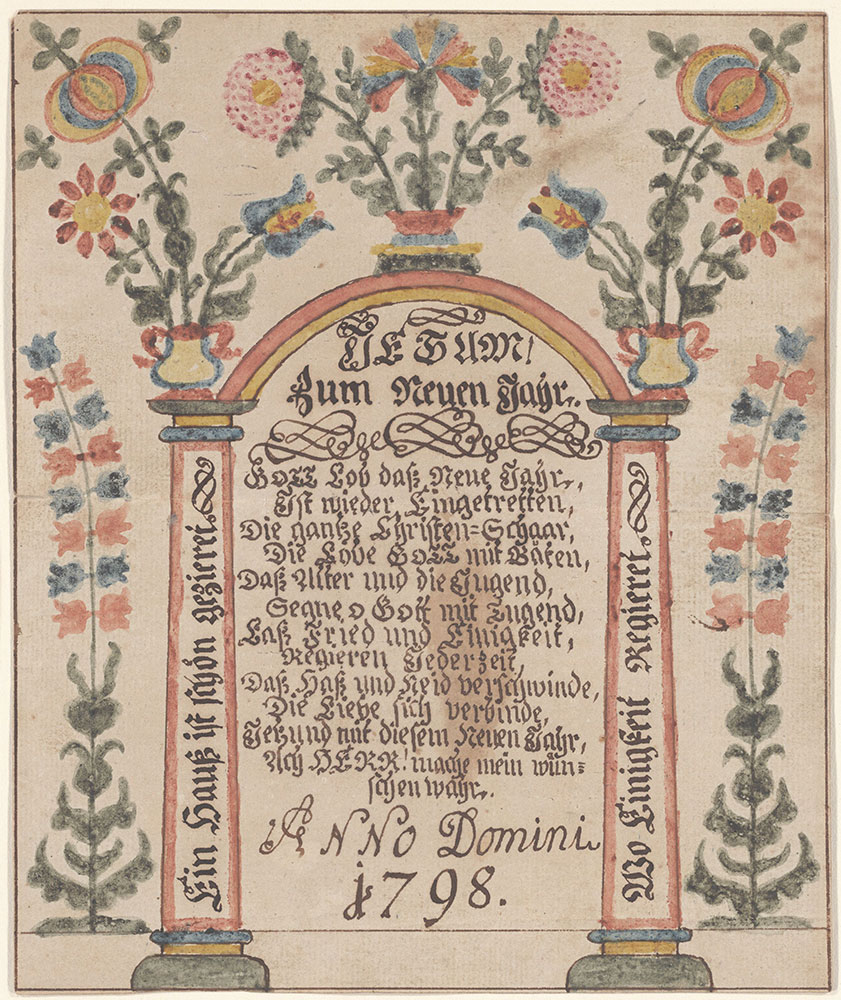 JESUM!
Zum Neuen Jahr.
GOTT Lob daß Neue Jahr,
Ist wieder Eingetretten,
Die gantze Christen=Schaar,
Die Lobe GOTT mit Bäten,
Daß Alter und die Jugend,
Segne o Gott mit Tugend,
Laß Fried und Einigkeit,
Regieren Jederzeit,
Daß Haß und Neid verschwinde,
Die Liebe sich verbinde,
Jetzund mit diesem Neuen Jahr,
Ach HERR! mache mein wün=
schen wahr.
ANNO Domini
1798.
Ein Hauß ist schön gezieret
Wo Einigkeit Regieret